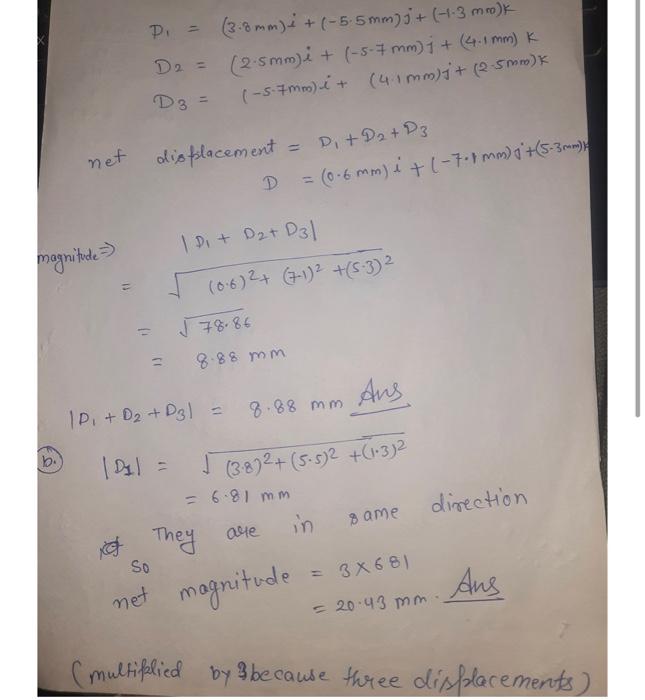 D1 = (3.8mm)i + (-5.5mm)j + (-1.3 mm)K
D2 = (2.5mm)i + (-5.7 mm)j + (4.1mm) K
D3 = (-5.7mm)i + (4.1mm)j + (2.5mm)K
net displacement = D1 + D2 + D3
D = (0.6 mm) i + (-7.1 mm) j + (5.3mm)K
magnitude ⇒ |D1 + D2 + D3|
= √(0.6)² + (7.1)² + (5.3)²
= √78.86
= 8.88 mm
|D1 + D2 + D3| = 8.88 mm Ans
b. |D1| = √(3.8)² + (5.5)² + (1.3)²
= 6.81 mm
They are in same direction
So
net magnitude = 3 × 681
= 20.43 mm. Ans
(multiplied by 3 because three displacements)